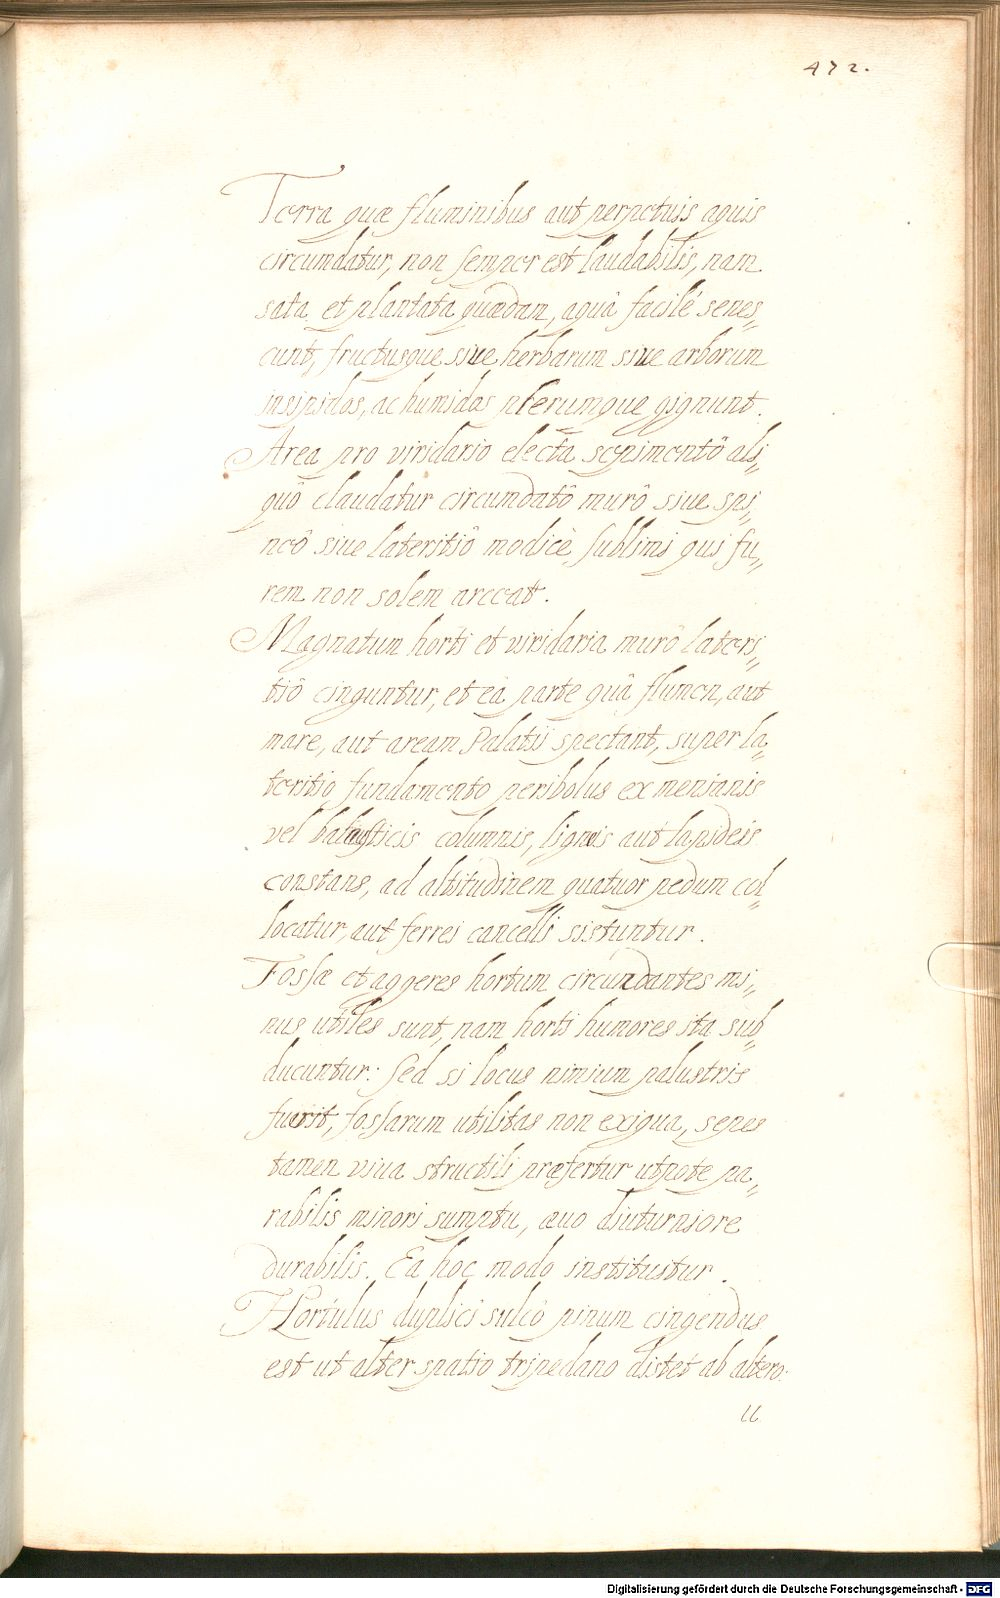 472.
Terra quæ fluminibus aut perpetuis aquis
circumdatur, non semper est laudabilis, nam
sata et plantata quædam, aquâ facilè senes„
cunt, fructusque siue herbarum siue arborum
insipidos, ac humidas plerumque gignunt.
Area pro viridario electa sepimentô ali„
quô claudatur circumdatô murô siue spi„
neô siue lateritiô modicè sublimi qui fu„
rem non solem arceat.
Magnatum horti et viridaria murô lateri„
tiô cinguntur, et eâ parte quâ flumen, aut
mare, aut aream Palatii spectant, super la„
teritio fundamento peribolus ex menianis
vel balausticis columnis, ligneis aut lapideis
constans, ad altitudinem quatuor pedum col„
locatur, aut ferrei cancelli sistuntur.
Fossæ et aggeres hortum circundantes mi„
nus utiles sunt, nam horti humores ita sub„
ducuntur: sed si locus nimium palustris
fuerit, fossarum utilitas non exigua, sepes
tamen viua structili præfertur utpote pa„
rabilis minori sumptu, auo diuturniore
durabilis. Ea hoc modo instituitur.
Hortulus duplici sulcô pinum cingendus
est ut alter spatio tripedano distet ab altero: